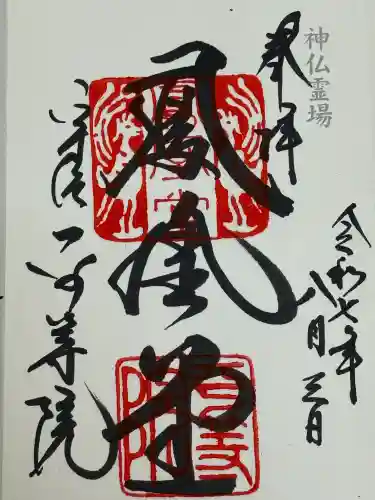 神仏霊場
奉拝
令和七年
八月三日
鳳凰堂
宇治平等院